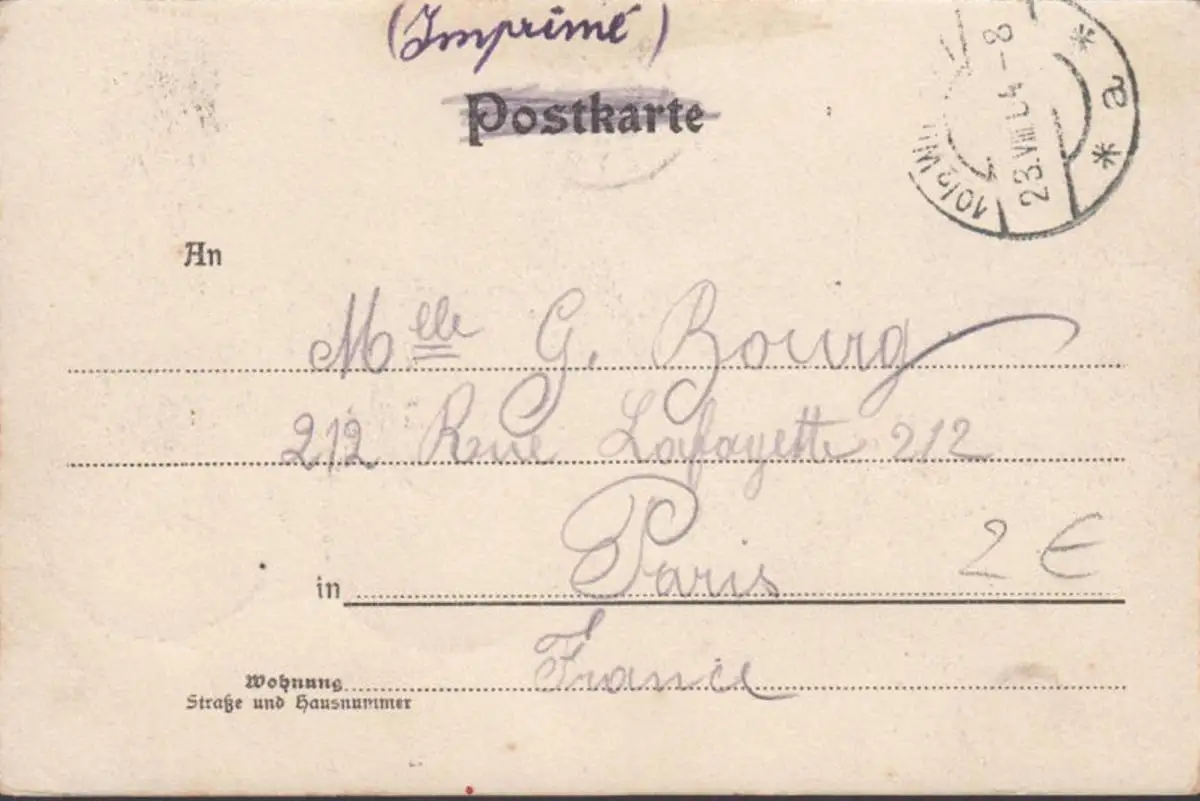 (Imprimé)
Postkarte
23.VIII.04-8
* a *
An
Mlle G. Bourg
212 Rue Lafayette 212
in Paris
2 €
France
Wohnung
Straße und Hausnummer